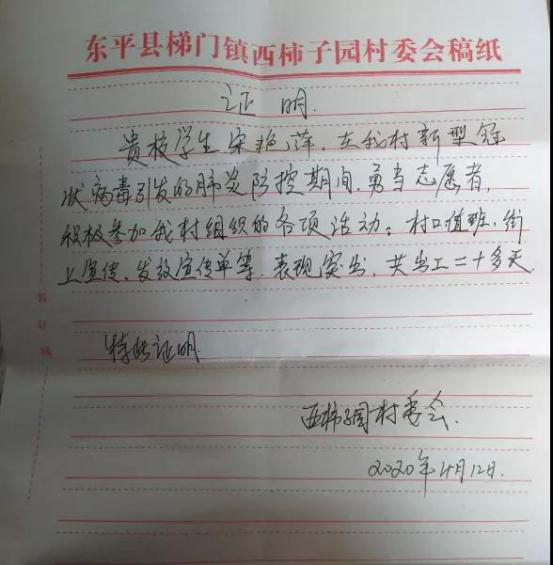 东平县梯门镇西柿子园村委会稿纸
证 明.
贵校学生宋艳萍,在我村新型冠
状病毒引发的肺炎防控期间,勇当志愿者,
积极参加我村组织的各项活动:村口值班、街
上宣传、发放宣传单等.表现突出,共出工二十多天.
特此证明
西柿子园村委会.
2020年4月12日.
装订线